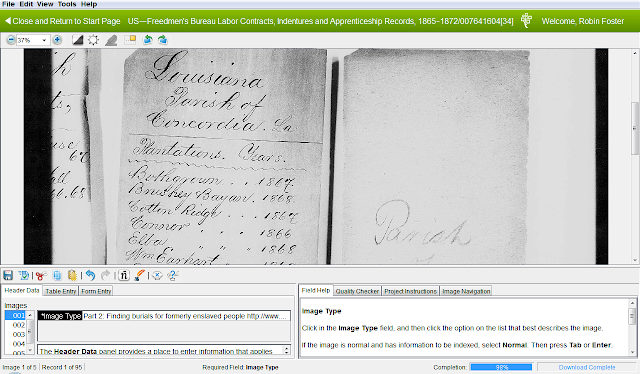 File Edit View Tools Help
Close and Return to Start Page US—Freedmen's Bureau Labor Contracts, Indentures and Apprenticeship Records, 1865-1872/007641604[34] Welcome, Robin Foster
37%
Louisiana
Parish of
Concordia. La
Plantations. Years.
Bothgrown . . 1867.
Brushey Bayau. 1868
Cotton Ridge . . 1867
Connor " " 1866
Elba " " " 1868
Wm Earhart
68
Parish
Header Data Table Entry Form Entry
Images
001
002
003
004
005
*Image Type Part 2: Finding burials for formerly enslaved people http://www....
The Header Data panel provides a place to enter information that applies
Field Help Quality Checker Project Instructions Image Navigation
Image Type
Click in the Image Type field, and then click the option on the list that best describes the image.
If the image is normal and has information to be indexed, select Normal. Then press Tab or Enter.
Image 1 of 5 Record 1 of 95 Required Field: Image Type Completion: 98% Download Complete